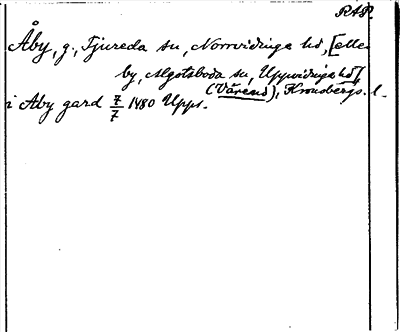 RAP.
Åby, g., Tjureda sn, Norrvidinge hd, [eller
by, Algotsboda sn, Uppvidinge hd],
(Värend), Kronobergs. l.
i Aby gard 7/7 1480 Upps.